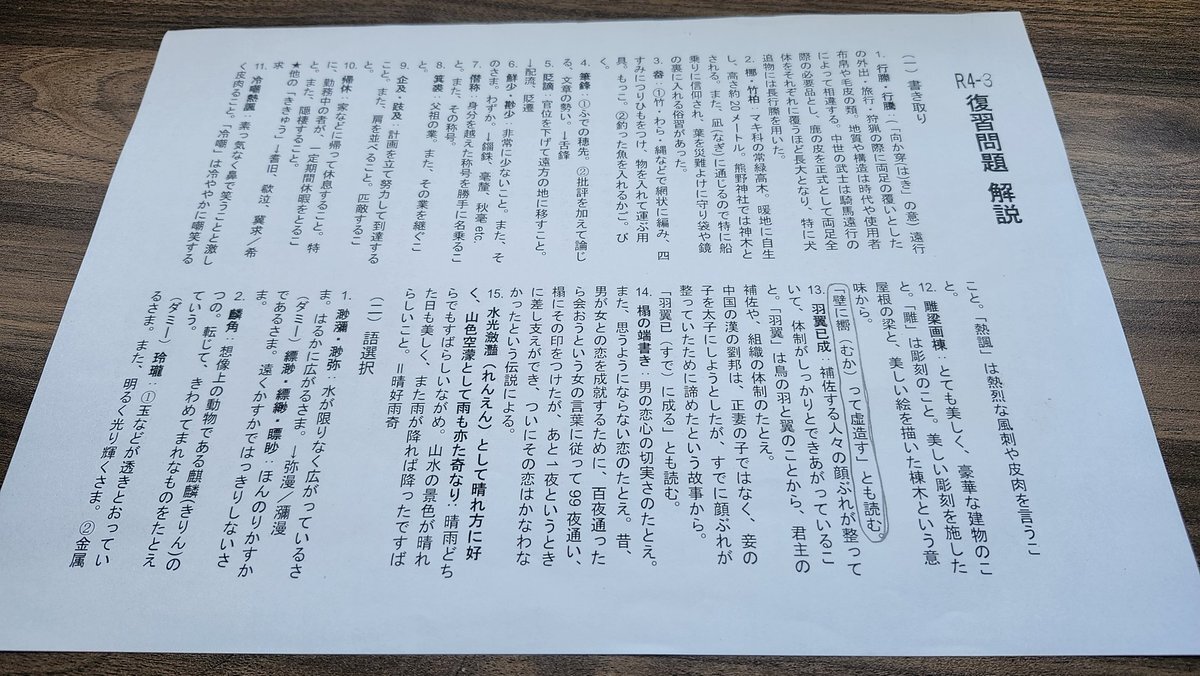 R4-3 復習問題 解説
(一)書き取り
1. 行縢・行騰:(「向か穿(はき)」の意)遠行
の外出・旅行・狩猟の際に両足の覆いとした
布帛や毛皮の類。地質や構造は時代や使用者
によって相違する。中世の武士は騎馬遠行の
際の必要品とし、鹿皮を正式として両足全
体をそれぞれに覆うほど長大となり、特に犬
追物には長行騰を用いた。
2. 梛・竹柏:マキ科の常緑高木。暖地に自生
し、高さ約20メートル。熊野神社では神木と
される。また、凪(なぎ)に通じるので特に船
乗りに信仰され、葉を災難よけに守り袋や鏡
の裏に入れる俗習があった。
3. 畚:①竹・わら・縄などで網状に編み、四
すみにつりひもをつけ、物を入れて運ぶ用
具。もっこ。②釣った魚を入れるかご。び
く。
4. 筆鋒:①ふでの穂先。②批評を加えて論じ
る、文章の勢い。→舌鋒
5. 貶謫:官位を下げて遠方の地に移すこと。
→配流、貶遷
6. 鮮少・尠少:非常に少ないこと。また、そ
のさま。わずか。→錙銖、毫釐、秋毫 etc
7. 僭称:身分を越えた称号を勝手に名乗るこ
と。また、その称号。
8. 箕裘:父祖の業。また、その業を継ぐこ
と。
9. 企及・跂及:計画を立て努力して到達する
こと。また、肩を並べること。匹敵するこ
と。
10. 帰休:家などに帰って休息すること。特
に、勤務中の者が、一定期間休暇をとるこ
と。また、隠棲すること。
★他の「ききゅう」→耆旧、欷泣、冀求/希
求
11. 冷嘲熱諷:素っ気なく鼻で笑うことと激し
く皮肉ること。「冷嘲」は冷ややかに嘲笑する
こと。「熱諷」は熱烈な風刺や皮肉を言うこ
と。
12. 雕梁画棟:とても美しく、豪華な建物のこ
と。「雕」は彫刻のこと。美しい彫刻を施した
屋根の梁と、美しい絵を描いた棟木という意
味から。
「壁に嚮(むか)って虚造す」とも読む。
13. 羽翼已成:補佐する人々の顔ぶれが整って
いて、体制がしっかりとできあがっているこ
と。「羽翼」は鳥の羽と翼のことから、君主の
補佐や、組織の体制のたとえ。
中国の漢の劉邦は、正妻の子ではなく、妾の
子を太子にしようとしたが、すでに顔ぶれが
整っていたために諦めたという故事から。
「羽翼已(すで)に成る」とも読む。
14. 榻の端書き:男の恋心の切実さのたとえ。
また、思うようにならない恋のたとえ。昔、
男が女との恋を成就するために、百夜通った
ら会おうという女の言葉に従って99夜通い、
榻にその印をつけたが、あと一夜というとき
に差し支えができ、ついにその恋はかなわな
かったという伝説による。
15. 水光瀲灩(れんえん)として晴れ方に好
く、山色空濛として雨も亦た奇なり:晴雨どち
らでもすばらしいながめ。山水の景色が晴れ
た日も美しく、また雨が降れば降ったですば
らしいこと。=晴好雨奇
(二)語選択
1. 渺瀰・渺弥:水が限りなく広がっているさ
ま。はるかに広がるさま。→弥漫/瀰漫
(ダミー)縹渺・縹緲・瞟眇:ほんのりかすか
であるさま。遠くかすかではっきりしないさ
ま。
2. 麟角:想像上の動物である麒麟(きりん)の
つの。転じて、きわめてまれなものをたとえ
ていう。
(ダミー)玲瓏:①玉などが透きとおってい
るさま。また、明るく光り輝くさま。②金属